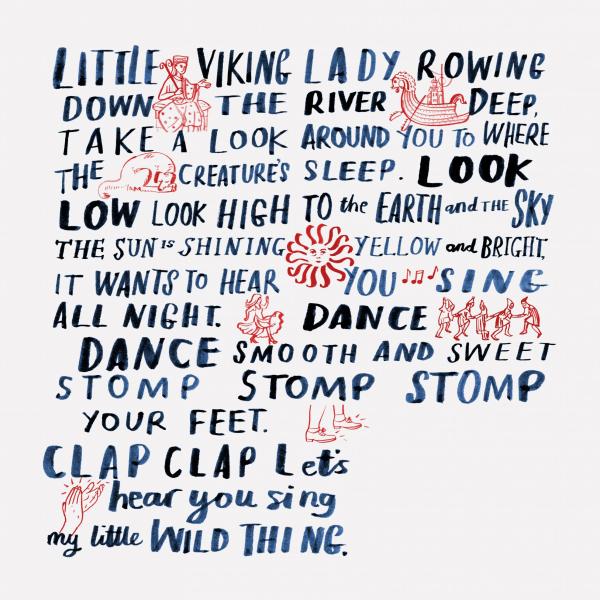 LITTLE VIKING LADY ROWING
DOWN THE RIVER DEEP,
TAKE A LOOK AROUND YOU TO WHERE
THE CREATURE'S SLEEP. LOOK
LOW LOOK HIGH TO the EARTH and THE SKY
THE SUN IS SHINING YELLOW and BRIGHT,
IT WANTS TO HEAR YOU SING
ALL NIGHT. DANCE
DANCE SMOOTH AND SWEET
STOMP STOMP STOMP
YOUR FEET.
CLAP CLAP Let's
hear you sing
my little WILD THING.